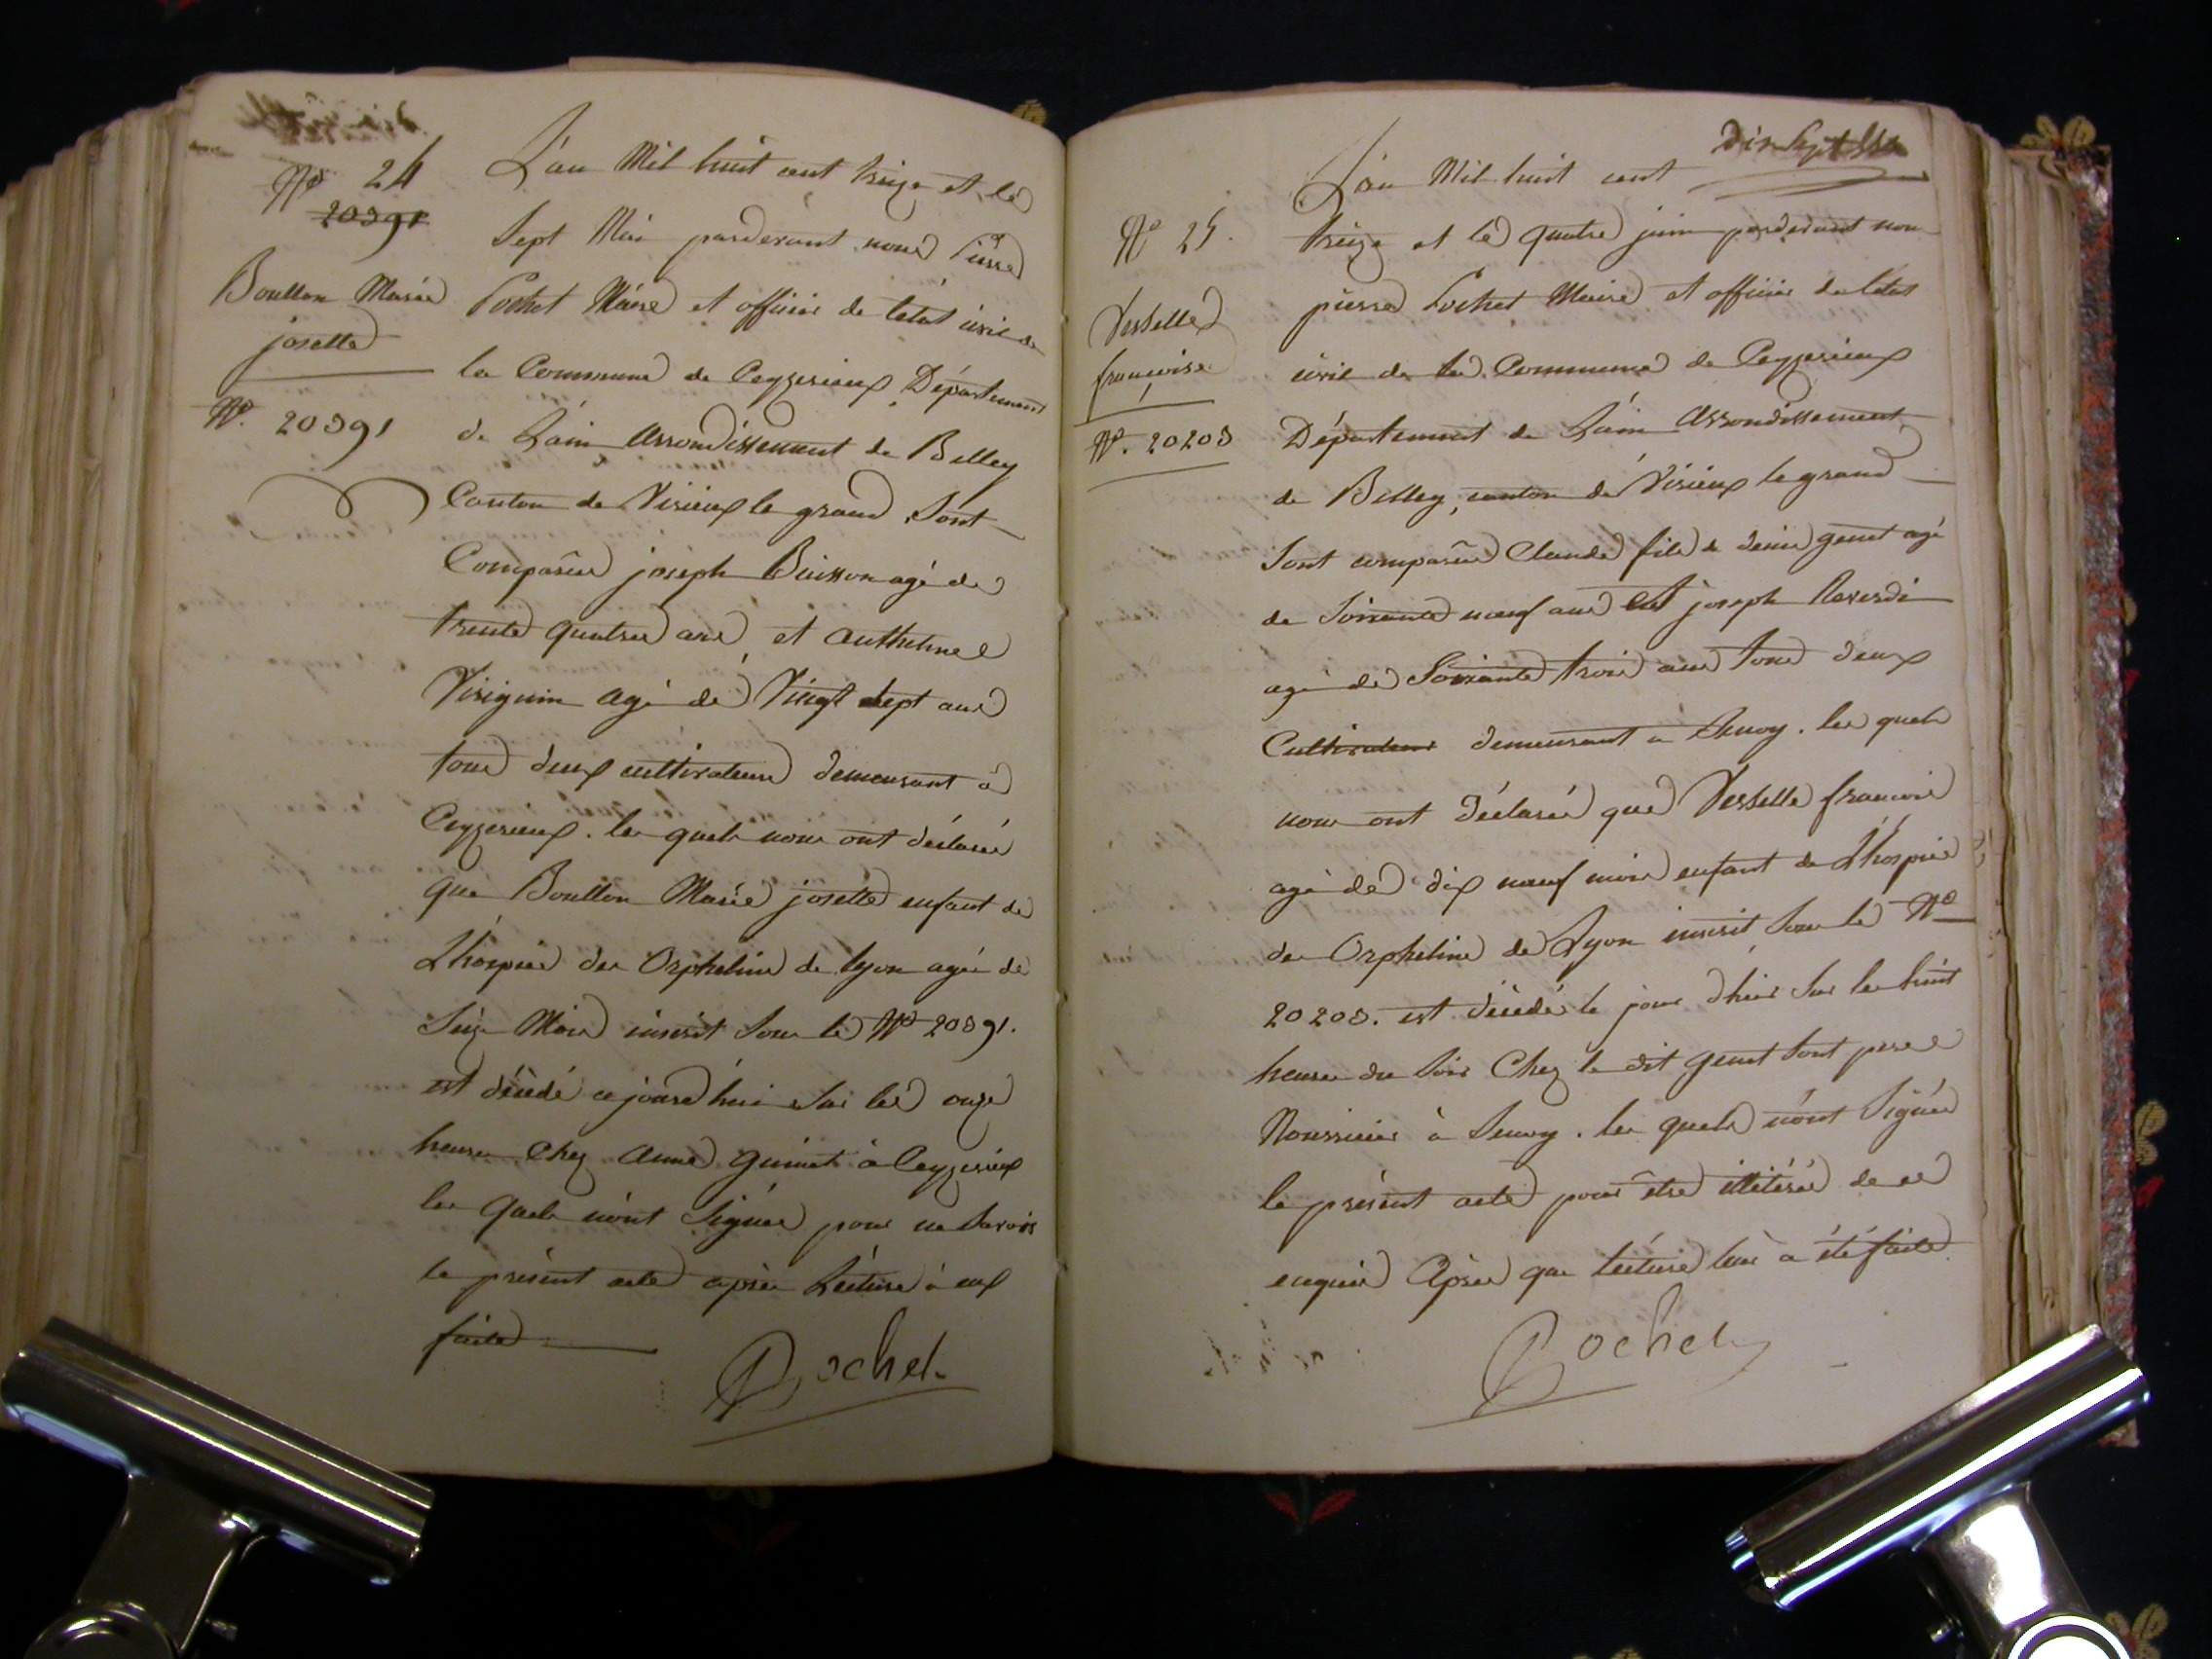 N° 24
20391
Boullon Marie
josette
N°. 20391
L'an Mil huit cent treize et le
Sept Mai pardevant nous Pierre
Pochet Maire et officier de l'état civil de
la Commune de Ceyzerieux Département
de L'ain arrondissement de Belley
Canton de Virieux le grand Sont
Comparus joseph Buisson agé de
trente quatre ans et anthelme
Virignin agé de Vingt sept ans
tous deux cultivateurs demeurant à
Ceyzerieux. les quels nous ont déclaré
que Boullon Marie josette enfant de
L'hospice des Orphelins de lyon agée de
Seize Mois inscrit sous le N° 20391.
est décédé cejourd'hui sur les onze
heures chez anne guinet à Ceyzerieux
les quels n'ont signés pour ne savoir
le présent acte après Lecture à eux
faite
Pochet
Dix Sept
N° 25.
Vesselle
francoise
N°. 20203
L'an Mil huit cent
treize et le quatre juin pardevant nous
pierre Pochet Maire et officier de l'état
civil de la Commune de Ceyzerieux
Département de L'ain arrondissement
de Belley, canton de Virieux le grand
Sont comparus Claude fils de denis genet agé
de Soixante neuf ans et joseph Reverdi
agé de Soixante trois ans tous deux
Cultivateurs demeurant a . les quels
nous ont déclaré que Vesselle francoise
agé de dix neuf mois enfant de L'hospice
des Orphelins de Lyon inscrit sous le N°
20203. est décédé le jour d'hier sur les huit
heures du soir Chez le dit genet son pere
Nourricier à . les quels n'ont signés
le présent acte pour être illitérés de ce
enquis Après que lecture leur a été faite.
Pochet